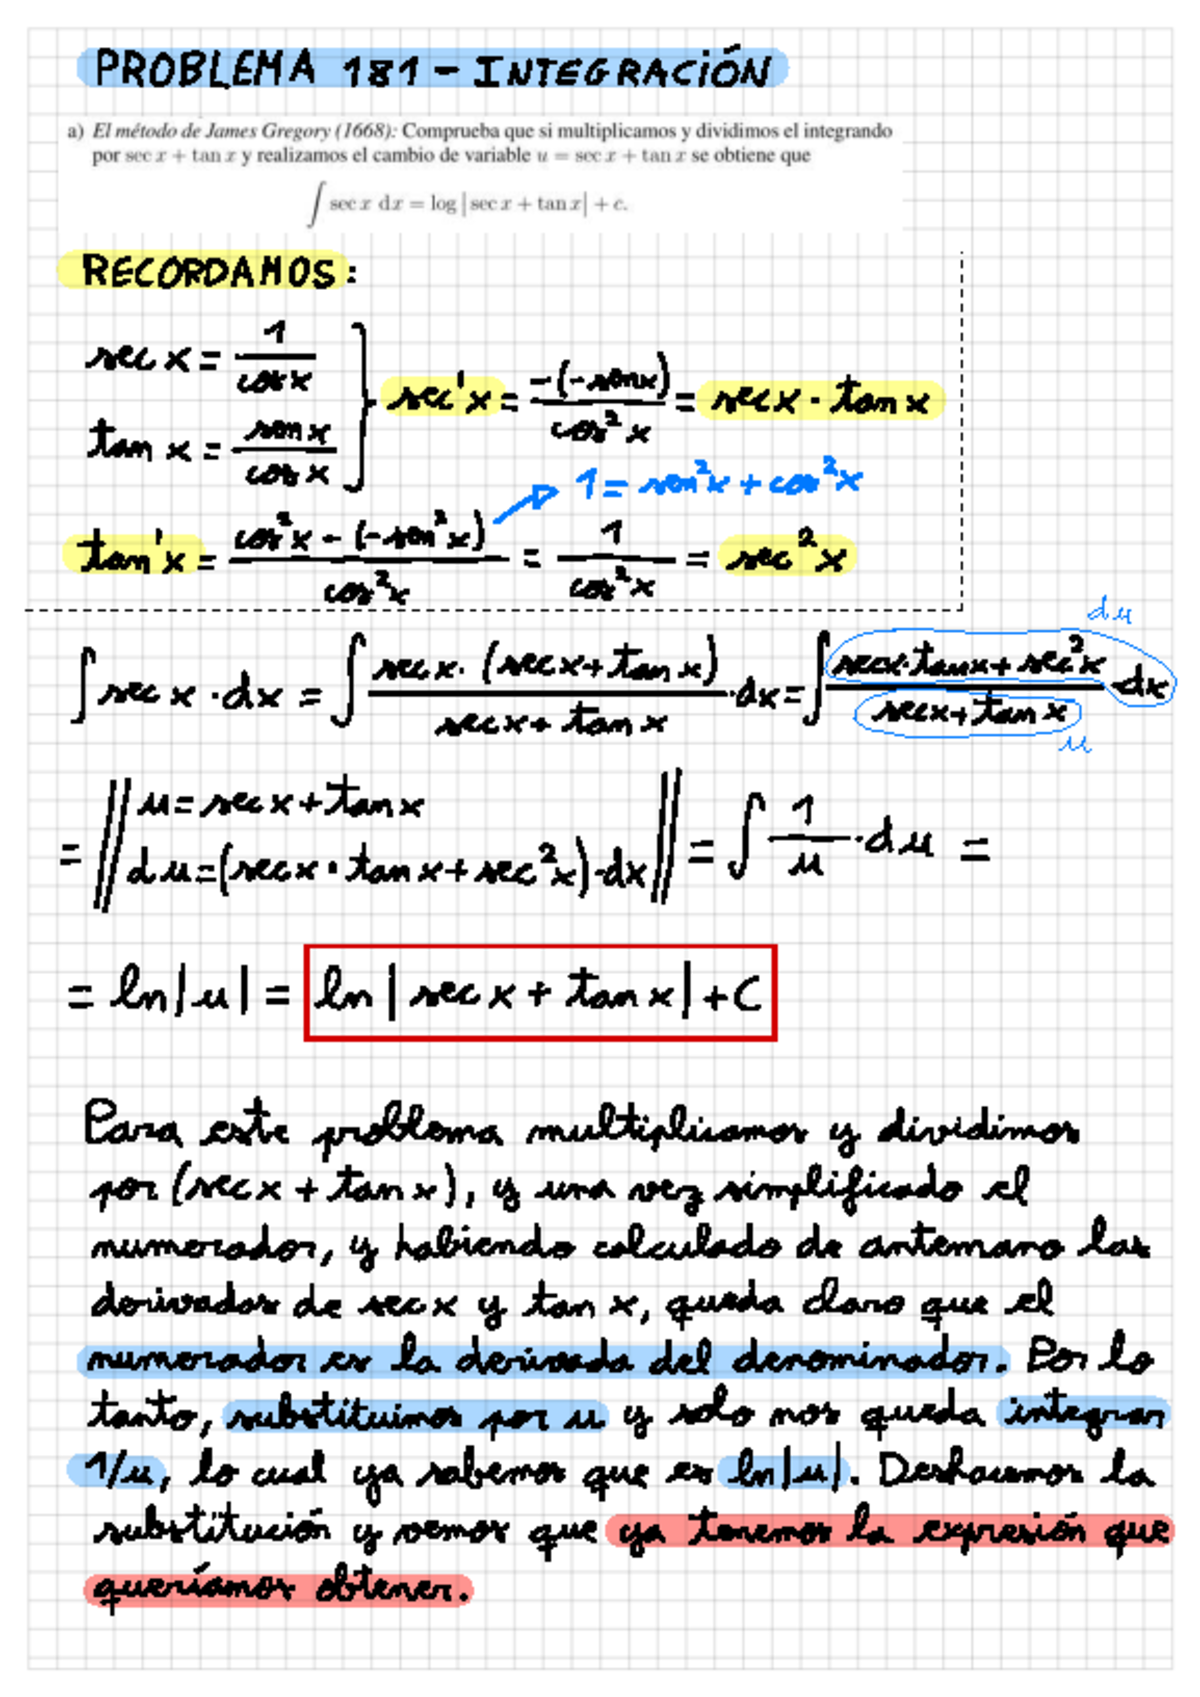 PROBLEMA 181 - INTEGRACIÓN
a) El método de James Gregory (1668): Comprueba que si multiplicamos y dividimos el integrando
por sec x + tan x y realizamos el cambio de variable u = sec x + tan x se obtiene que
∫ sec x dx = log |sec x + tan x| + c.
RECORDAMOS:
sec x = 1/cos x
tan x = sen x/cos x } sec'x = -(-sen x)/cos²x = sec x · tan x
1 = sen²x + cos²x
tan'x = cos²x - (-sen²x)/cos²x = 1/cos²x = sec²x
du
∫ sec x · dx = ∫ sec x · (sec x + tan x)/sec x + tan x · dx = ∫ sec x · tan x + sec²x/sec x + tan x · dx
u
= ‖ u = sec x + tan x
du = (sec x · tan x + sec²x) · dx ‖ = ∫ 1/u · du =
= ln|u| = ln | sec x + tan x | + C
Para este problema multiplicamos y dividimos
por (sec x + tan x), y una vez simplificado el
numerador, y habiendo calculado de antemano las
derivadas de sec x y tan x, queda claro que el
numerador es la derivada del denominador. Por lo
tanto, substituimos por u y solo nos queda integrar
1/u, lo cual ya sabemos que es ln|u|. Deshacemos la
substitución y vemos que ya tenemos la expresión que
queríamos obtener.